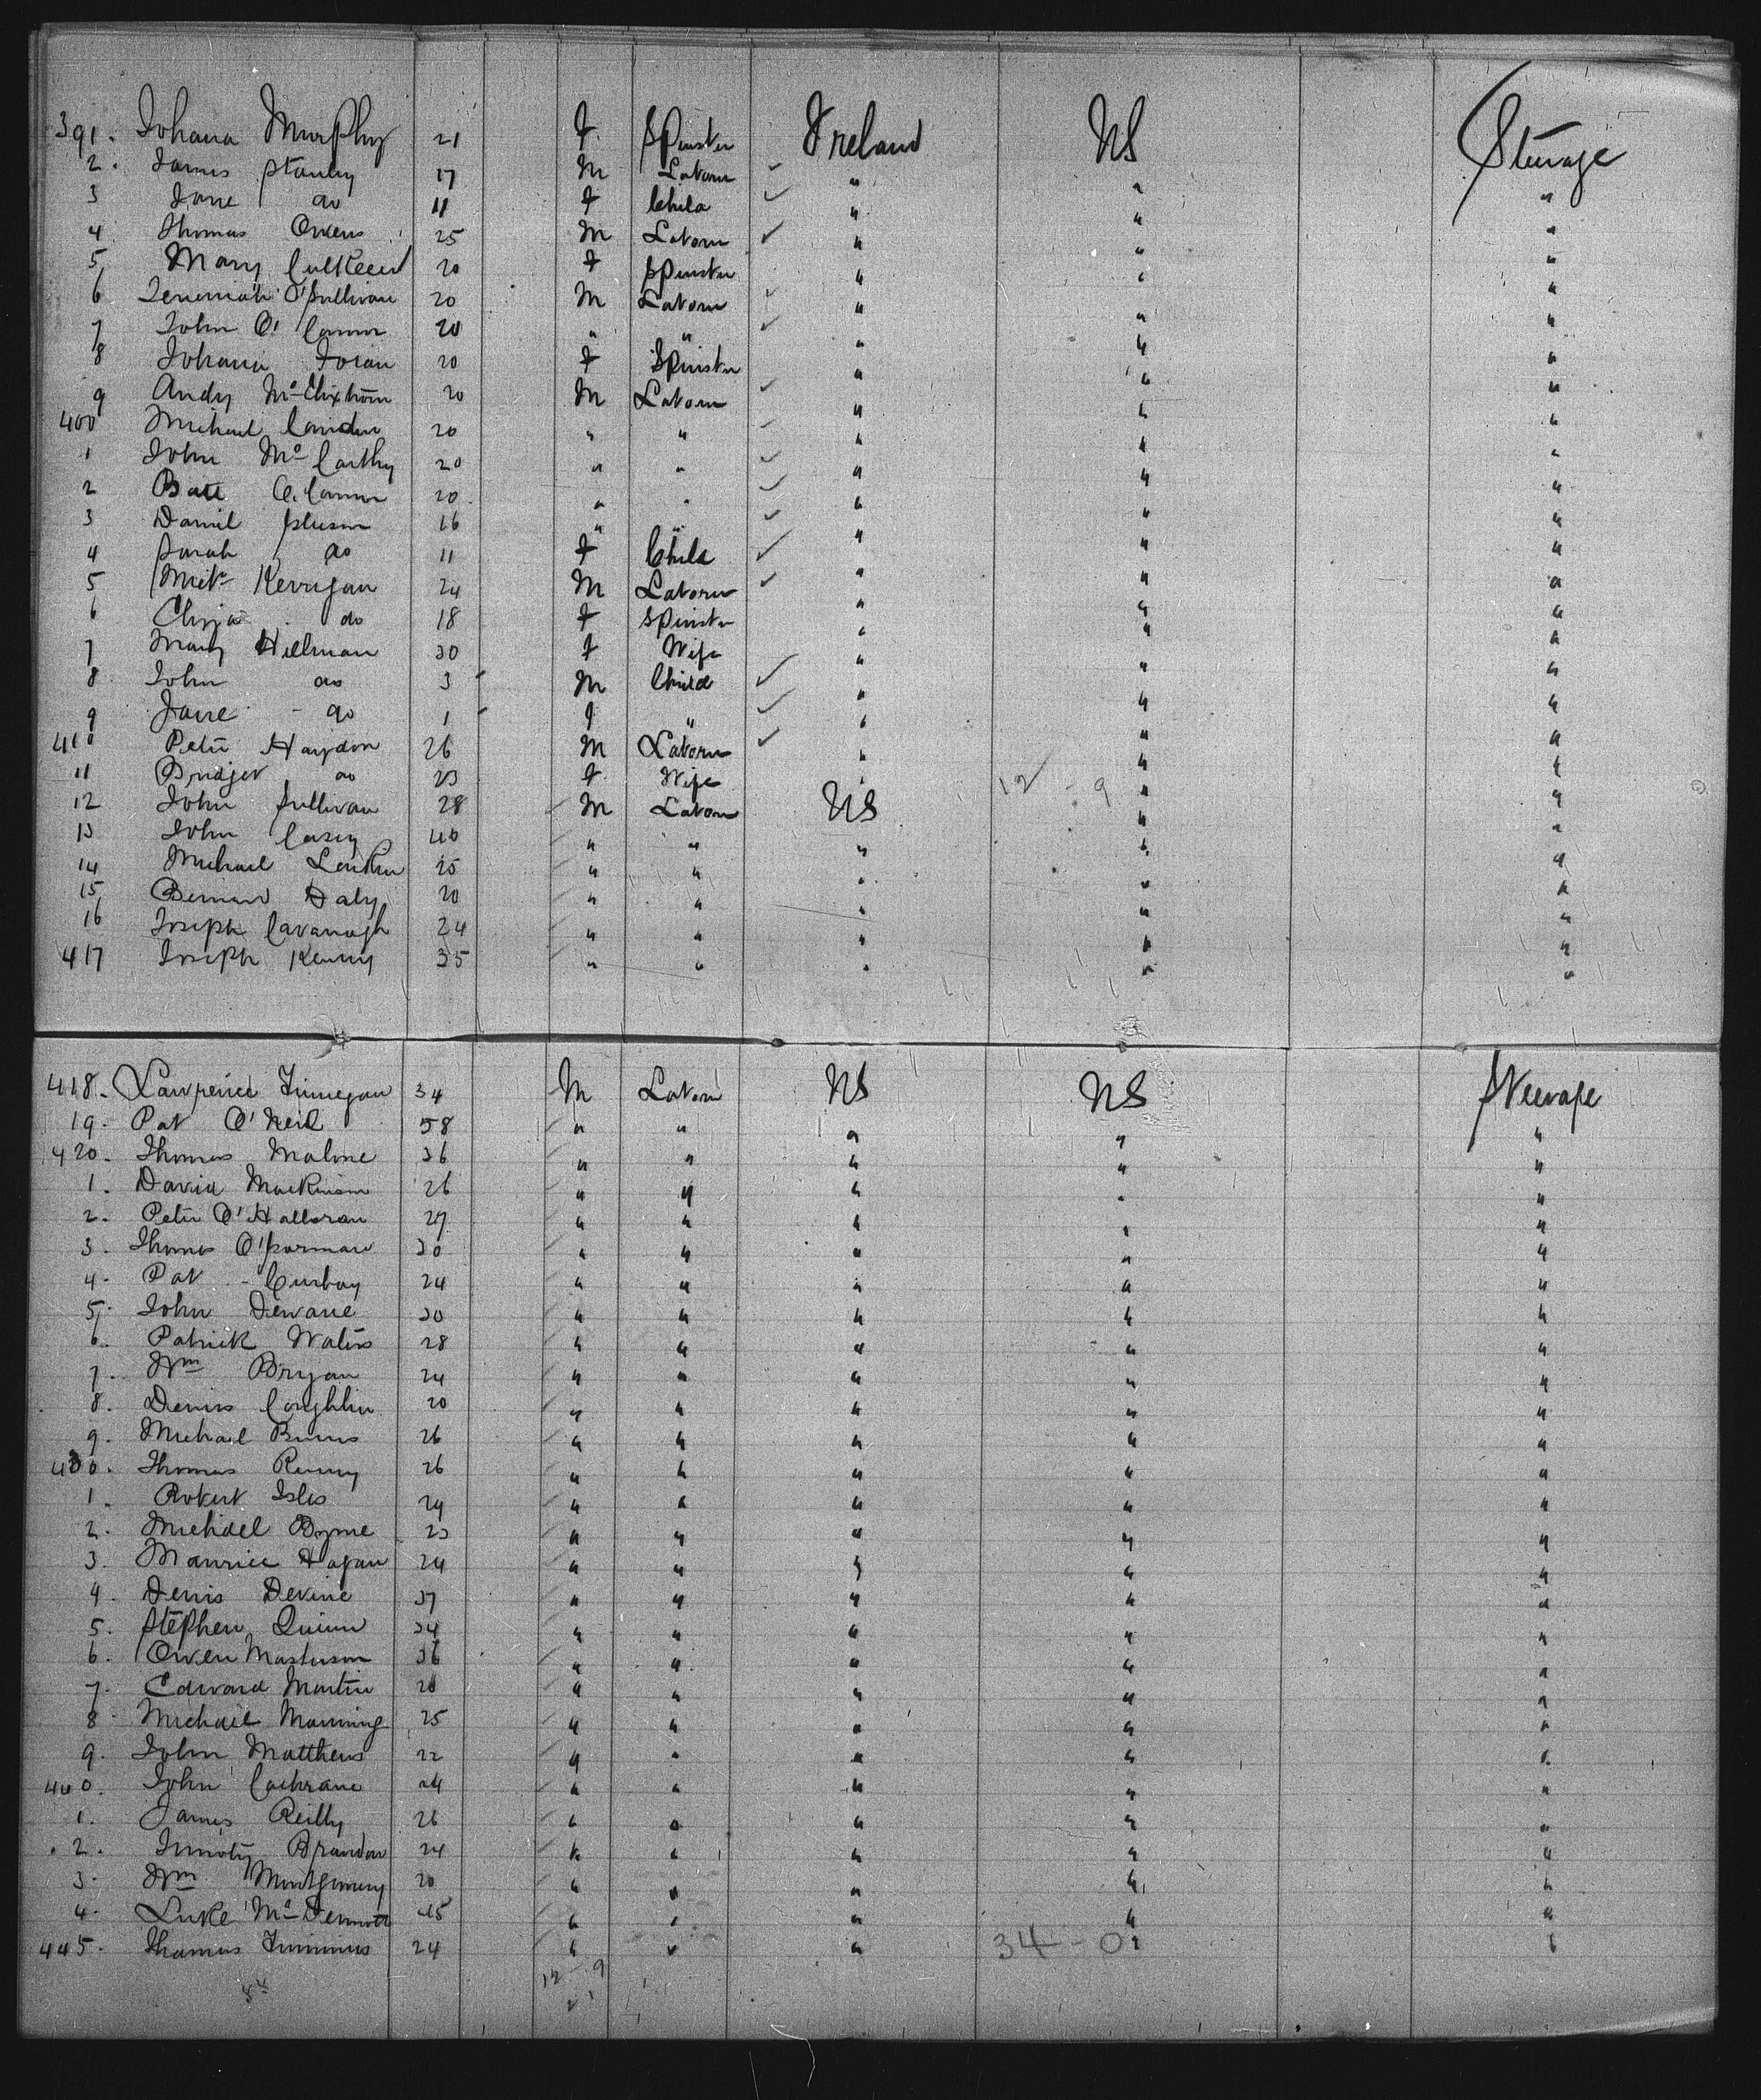 391. Johana Murphy 21 F Spinster Ireland US Steerage
2. James Stanley 17 M Laborer " " "
3 Jane do 11 F Child " " "
4 Thomas Owens 25 M Laborer " " "
5 Mary Culkeen 20 F Spinster " " "
6 Jeremiah O'Sullivan 20 M Laborer " " "
7 John O'Connor 20 " " " " "
8 Johana Foran 20 F Spinster " " "
9 Andy 20 M Laborer " " "
400 Michael Condon 20 " " " " "
1 John McCarthy 20 " " " " "
2 Batt O'Connor 20 " " " " "
3 Daniel 16 " " " " "
4 Sarah do 11 F Child " " "
5 Kerrigan 24 M Laborer " " "
6 Eliza do 18 F Spinster " " "
7 Mary Hillman 30 F Wife " " "
8 John do 3 M Child " " "
9 Jane do 1 F " " " "
410 Peter Haydon 26 M Laborer " " "
11 Bridget do 23 F Wife " 12 - 9 " "
12 John Sullivan 28 M Laborer US " "
13 John Casey 40 " " " " "
14 Michael 25 " " " " "
15 Bernard Daly 20 " " " " "
16 Joseph Cavanagh 24 " " " " "
417 Joseph Kenny 35 " " " " "
418. Lawrence Finnegan 34 M Laborer US US Steerage
19. Pat O'Neil 58 " " " " "
420. Thomas Malone 36 " " " " "
1. David Mackinson 26 " " " " "
2. Peter O'Halloran 27 " " " " "
3. Thomas O'Gorman 30 " " " " "
4. Pat Conboy 24 " " " " "
5. John Dewane 30 " " " " "
6. Patrick Walters 28 " " " " "
7. Wm Bryan 24 " " " " "
8. Denis Coughlin 20 " " " " "
9. Michael Burns 26 " " " " "
430. Thomas 26 " " " " "
1. Robert Isles 29 " " " " "
2. Michael Byrne 23 " " " " "
3. Maurice Hogan 24 " " " " "
4. Denis Devine 37 " " " " "
5. Stephen Quinn 34 " " " " "
6. Owen Masterson 36 " " " " "
7. Edward Martin 28 " " " " "
8 Michael Manning 25 " " " " "
9. John Matthews 22 " " " " "
440. John Cochrane 24 " " " " "
1. James Reilly 26 " " " " "
2. Timoty Brandon 24 " " " " "
3. Wm Montgomery 20 " " " " "
4. Luke McDermott 45 " " " " "
445. Thomas Timmins 24 " " " 34 - 0 " "
12 - 9